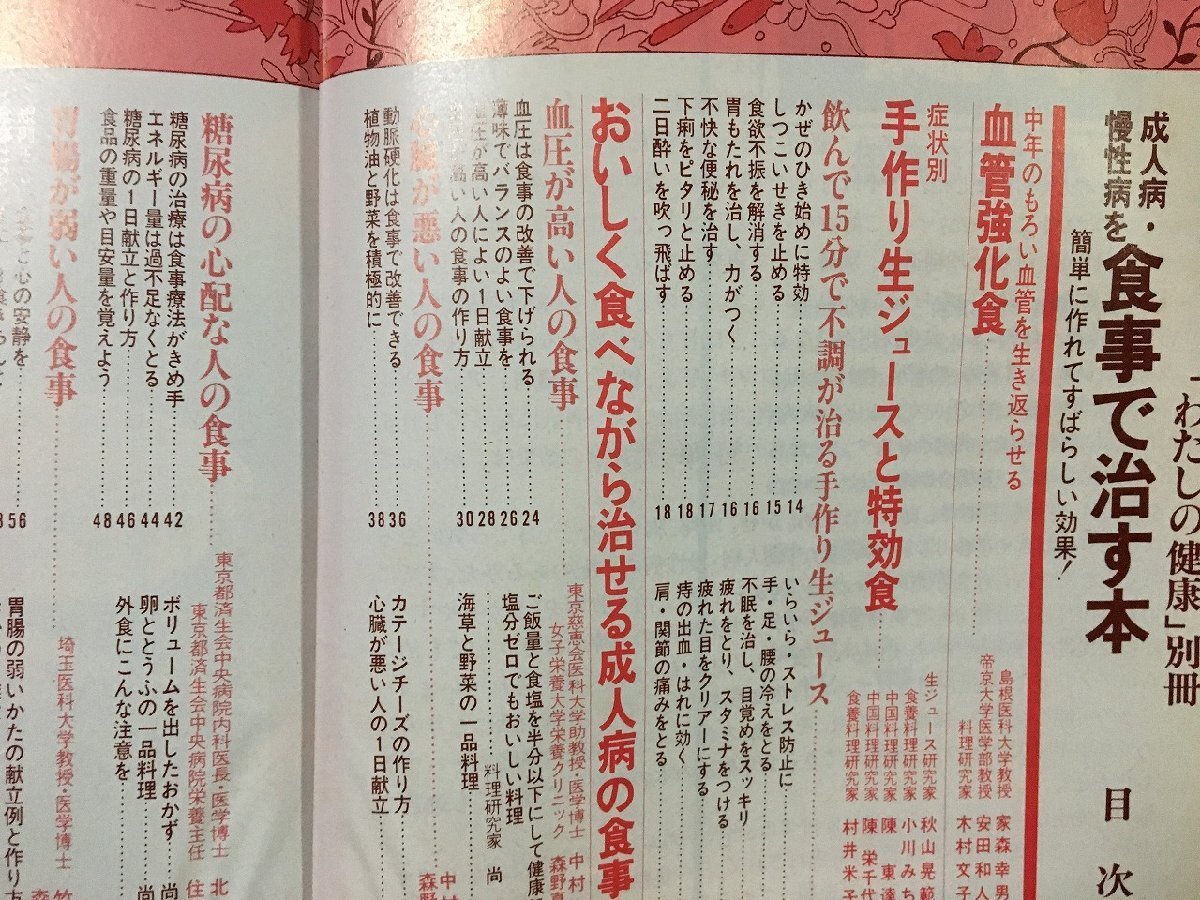 「わたしの健康」別冊
成人病・
慢性病を
食事で治す本
簡単に作れてすばらしい効果!
目次
中年のもろい血管を生き返らせる
血管強化食
島根医科大学教授 家森幸男
帝京大学医学部教授 安田和人
料理研究家 木村文子
症状別
手作り生ジュースと特効食
生ジュース研究家 秋山晃範
食養料理研究家 小川みち
中国料理研究家 陳東達
中国料理研究家 陳栄千代
食養料理研究家 村井米子
飲んで15分で不調が治る手作り生ジュース
かぜのひき始めに特効 14
しつこいせきを止める 15
食欲不振を解消する 16
胃もたれを治し、力がつく 16
不快な便秘を治す 17
下痢をピタリと止める 18
二日酔いを吹っ飛ばす 18
いらいら・ストレス防止に
手・足・腰の冷えをとる
不眠を治し、目覚めをスッキリ
疲れをとり、スタミナをつける
疲れた目をクリアーにする
痔の出血・はれに効く
肩・関節の痛みをとる
おいしく食べながら治せる成人病の食事
血圧が高い人の食事
東京慈恵会医科大学助教授・医学博士 中村
女子栄養大学栄養クリニック 森野
血圧は食事の改善で下げられる 24
薄味でバランスのよい食事を 26
血圧が高い人によい1日献立 28
人の食事の作り方 30
ご飯量と食塩を半分以下にして健康
塩分ゼロでもおいしい料理
料理研究家 尚
海草と野菜の一品料理
心臓が悪い人の食事
中
森野
動脈硬化は食事で改善できる 36
植物油と野菜を積極的に 38
カテージチーズの作り方
心臓が悪い人の1日献立
糖尿病の心配な人の食事
東京都済生会中央病院内科医長・医学博士 北
東京都済生会中央病院栄養主任 住
糖尿病の治療は食事療法がきめ手 42
エネルギー量は過不足なくとる 44
糖尿病の1日献立と作り方 46
食品の重量や目安量を覚えよう 48
ボリュームを出したおかず 尚
卵ととうふの一品料理 尚
外食にこんな注意を
胃腸が弱い人の食事
埼玉医科大学教授・医学博士
と心の安静を 56
胃腸の弱いかたの献立例と作り方